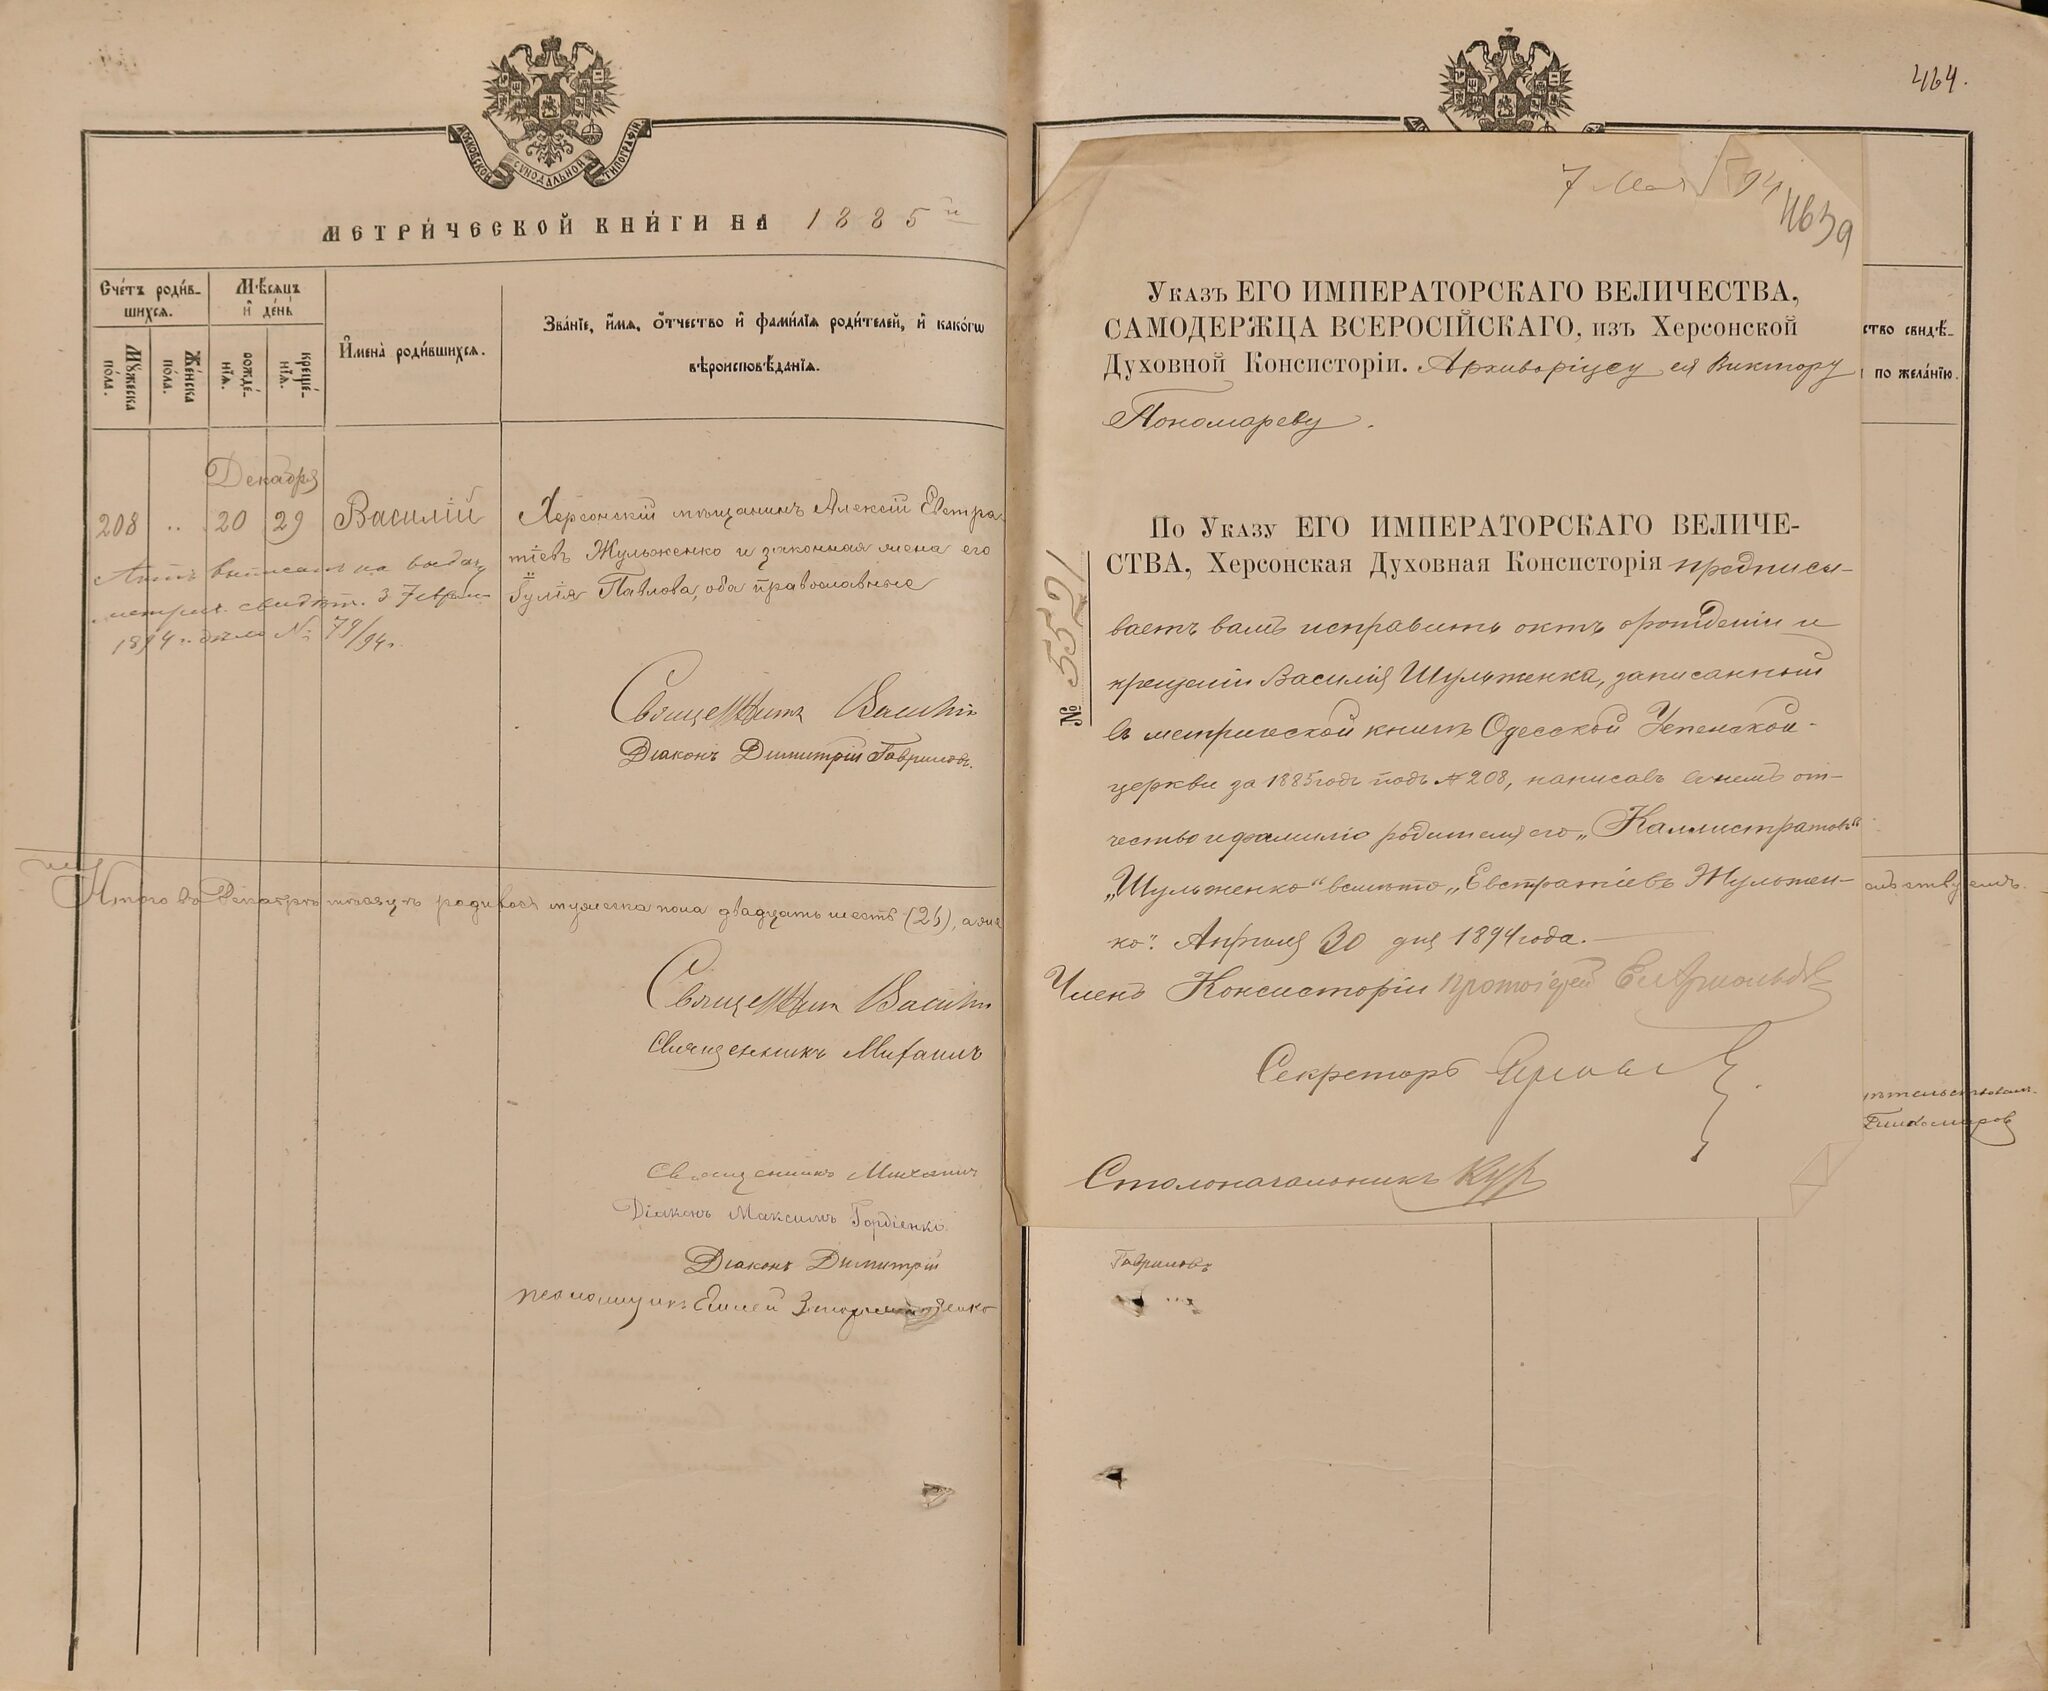 МОСКОВСКОЙ СѴНОДАЛЬНОЙ ТИПОГРАФІИ
МЕТРИ́ЧЕСКОЙ КНИ́ГИ НА 1885 й
Сче́тъ роди́в-
шихся.
Мѣ́сяцъ
и́ де́нь
Мꙋ́жеска
по́ла.
Же́нска
по́ла.
рожде́-
нїѧ.
креще́-
нїѧ.
И҆мена̀ роди́вшихся.
Зва́нїе, и҆́мѧ, о҆́тчество и҆ фами́лїѧ роди́телей, и҆ како́гѡ
вѣроисповѣ́данїѧ.
Декабря
208 .. 20 29 Василій
Херсонскій мѣщанинъ Алексій Евстра-
тіевъ Жульженко и законная жена его
Іулія Павлова, оба православные
Актъ выписанъ на выдачу
метрич. свидѣт. 3 Феврал
1894 г. дѣло № 79/94 г.
Священникъ Василій
Діаконъ Димитрій Гавриловъ.
Итого въ Декабрѣ мѣсяцѣ родилося мужеска пола двадцать шесть (26), а жен
Священникъ Василій
Священникъ Михаилъ
Священникъ Михаилъ
Діаконъ Максимъ Гордіенко
Діаконъ Димитрій
псаломщикъ
464.
7 Мая 94
4639
Указъ ЕГО ИМПЕРАТОРСКАГО ВЕЛИЧЕСТВА,
САМОДЕРЖЦА ВСЕРОСІЙСКАГО, изъ Херсонской
Духовной Консисторіи. Архиваріусу ея Виктору
Пономареву.
По Указу ЕГО ИМПЕРАТОРСКАГО ВЕЛИЧЕ-
СТВА, Херсонская Духовная Консисторія предписы-
ваетъ вамъ исправить актъ о рожденіи и
крещеніи Василія Шульженка, записанный
въ метрической книгѣ Одесской Успенской
церкви за 1885 годъ подъ № 208, написавъ въ немъ от-
чество и фамилію родителя его „Каллистратовъ“
„Шульженко“ вмѣсто „Евстратіевъ Жульжен-
ко“. Апрѣля 30 дня 1894 года.
Членъ Консисторіи Протоіерей
Секретарь
Столоначальникъ
№ 5521
ство свидѣ-
по жела́нїю.
Гавриловъ